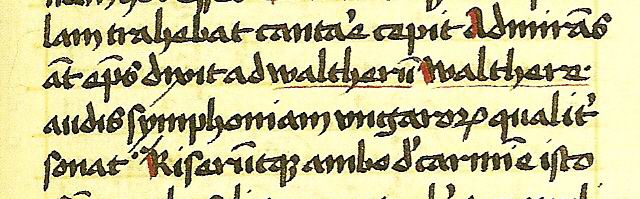 lam trahebat cantaͬe cepit Admirās
āt ep̄s dixit ad waltherū walthere·
audis symphoniam ungaroꝝ qualit᷑
sonat· Riserūtqꝫ ambo d᷑ carmīe isto